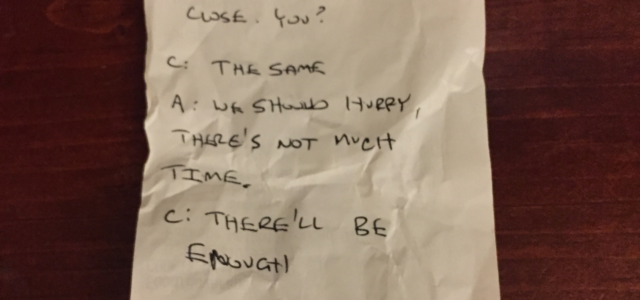 CLOSE. YOU?
C: THE SAME
A: WE SHOULD HURRY,
THERE'S NOT MUCH
TIME.
C: THERE'LL BE
ENOUGH